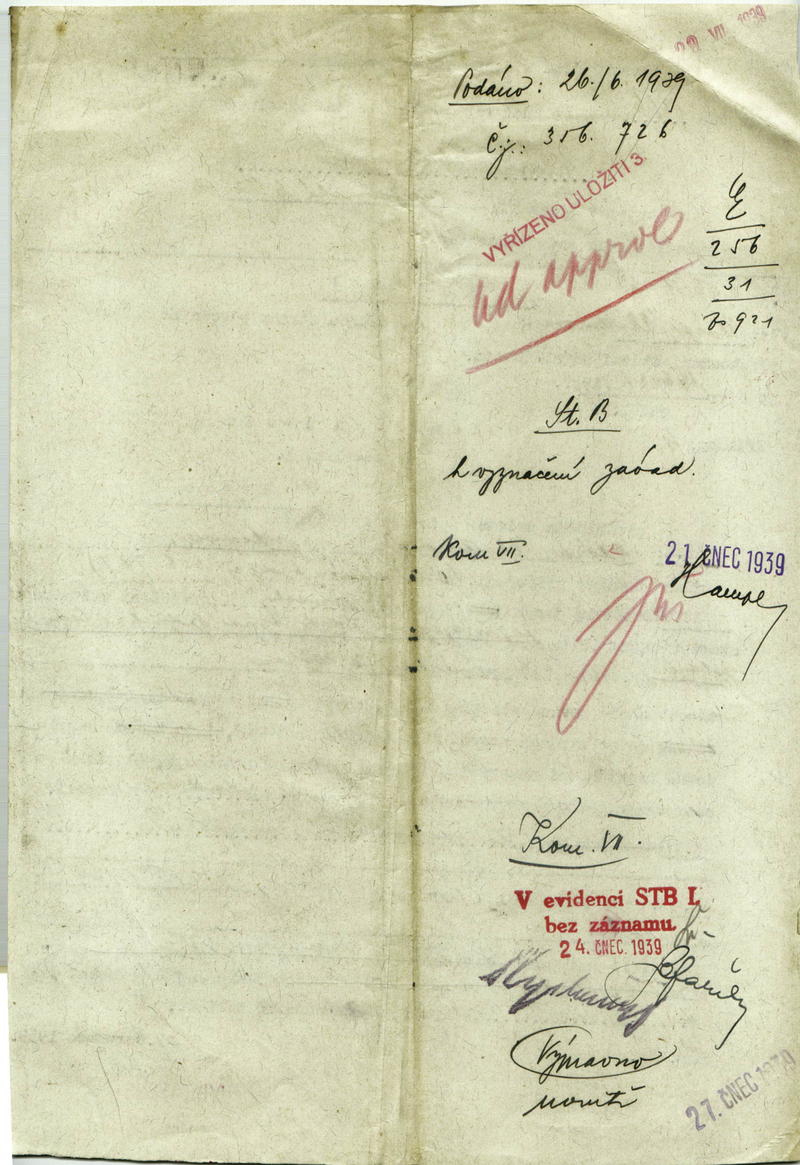 VII 1939
Podáno: 26./6. 1939
Č.j.: 356. 726
VYŘÍZENO ULOŽITI 3.
ad approb
256
31
921
St. B
k vyznačení závad.
Kom VII.
21 ČNEC 1939
Kom. VII.
V evidenci STB I.
bez záznamu.
24. ČNEC. 1939
27. ČNEC 1939